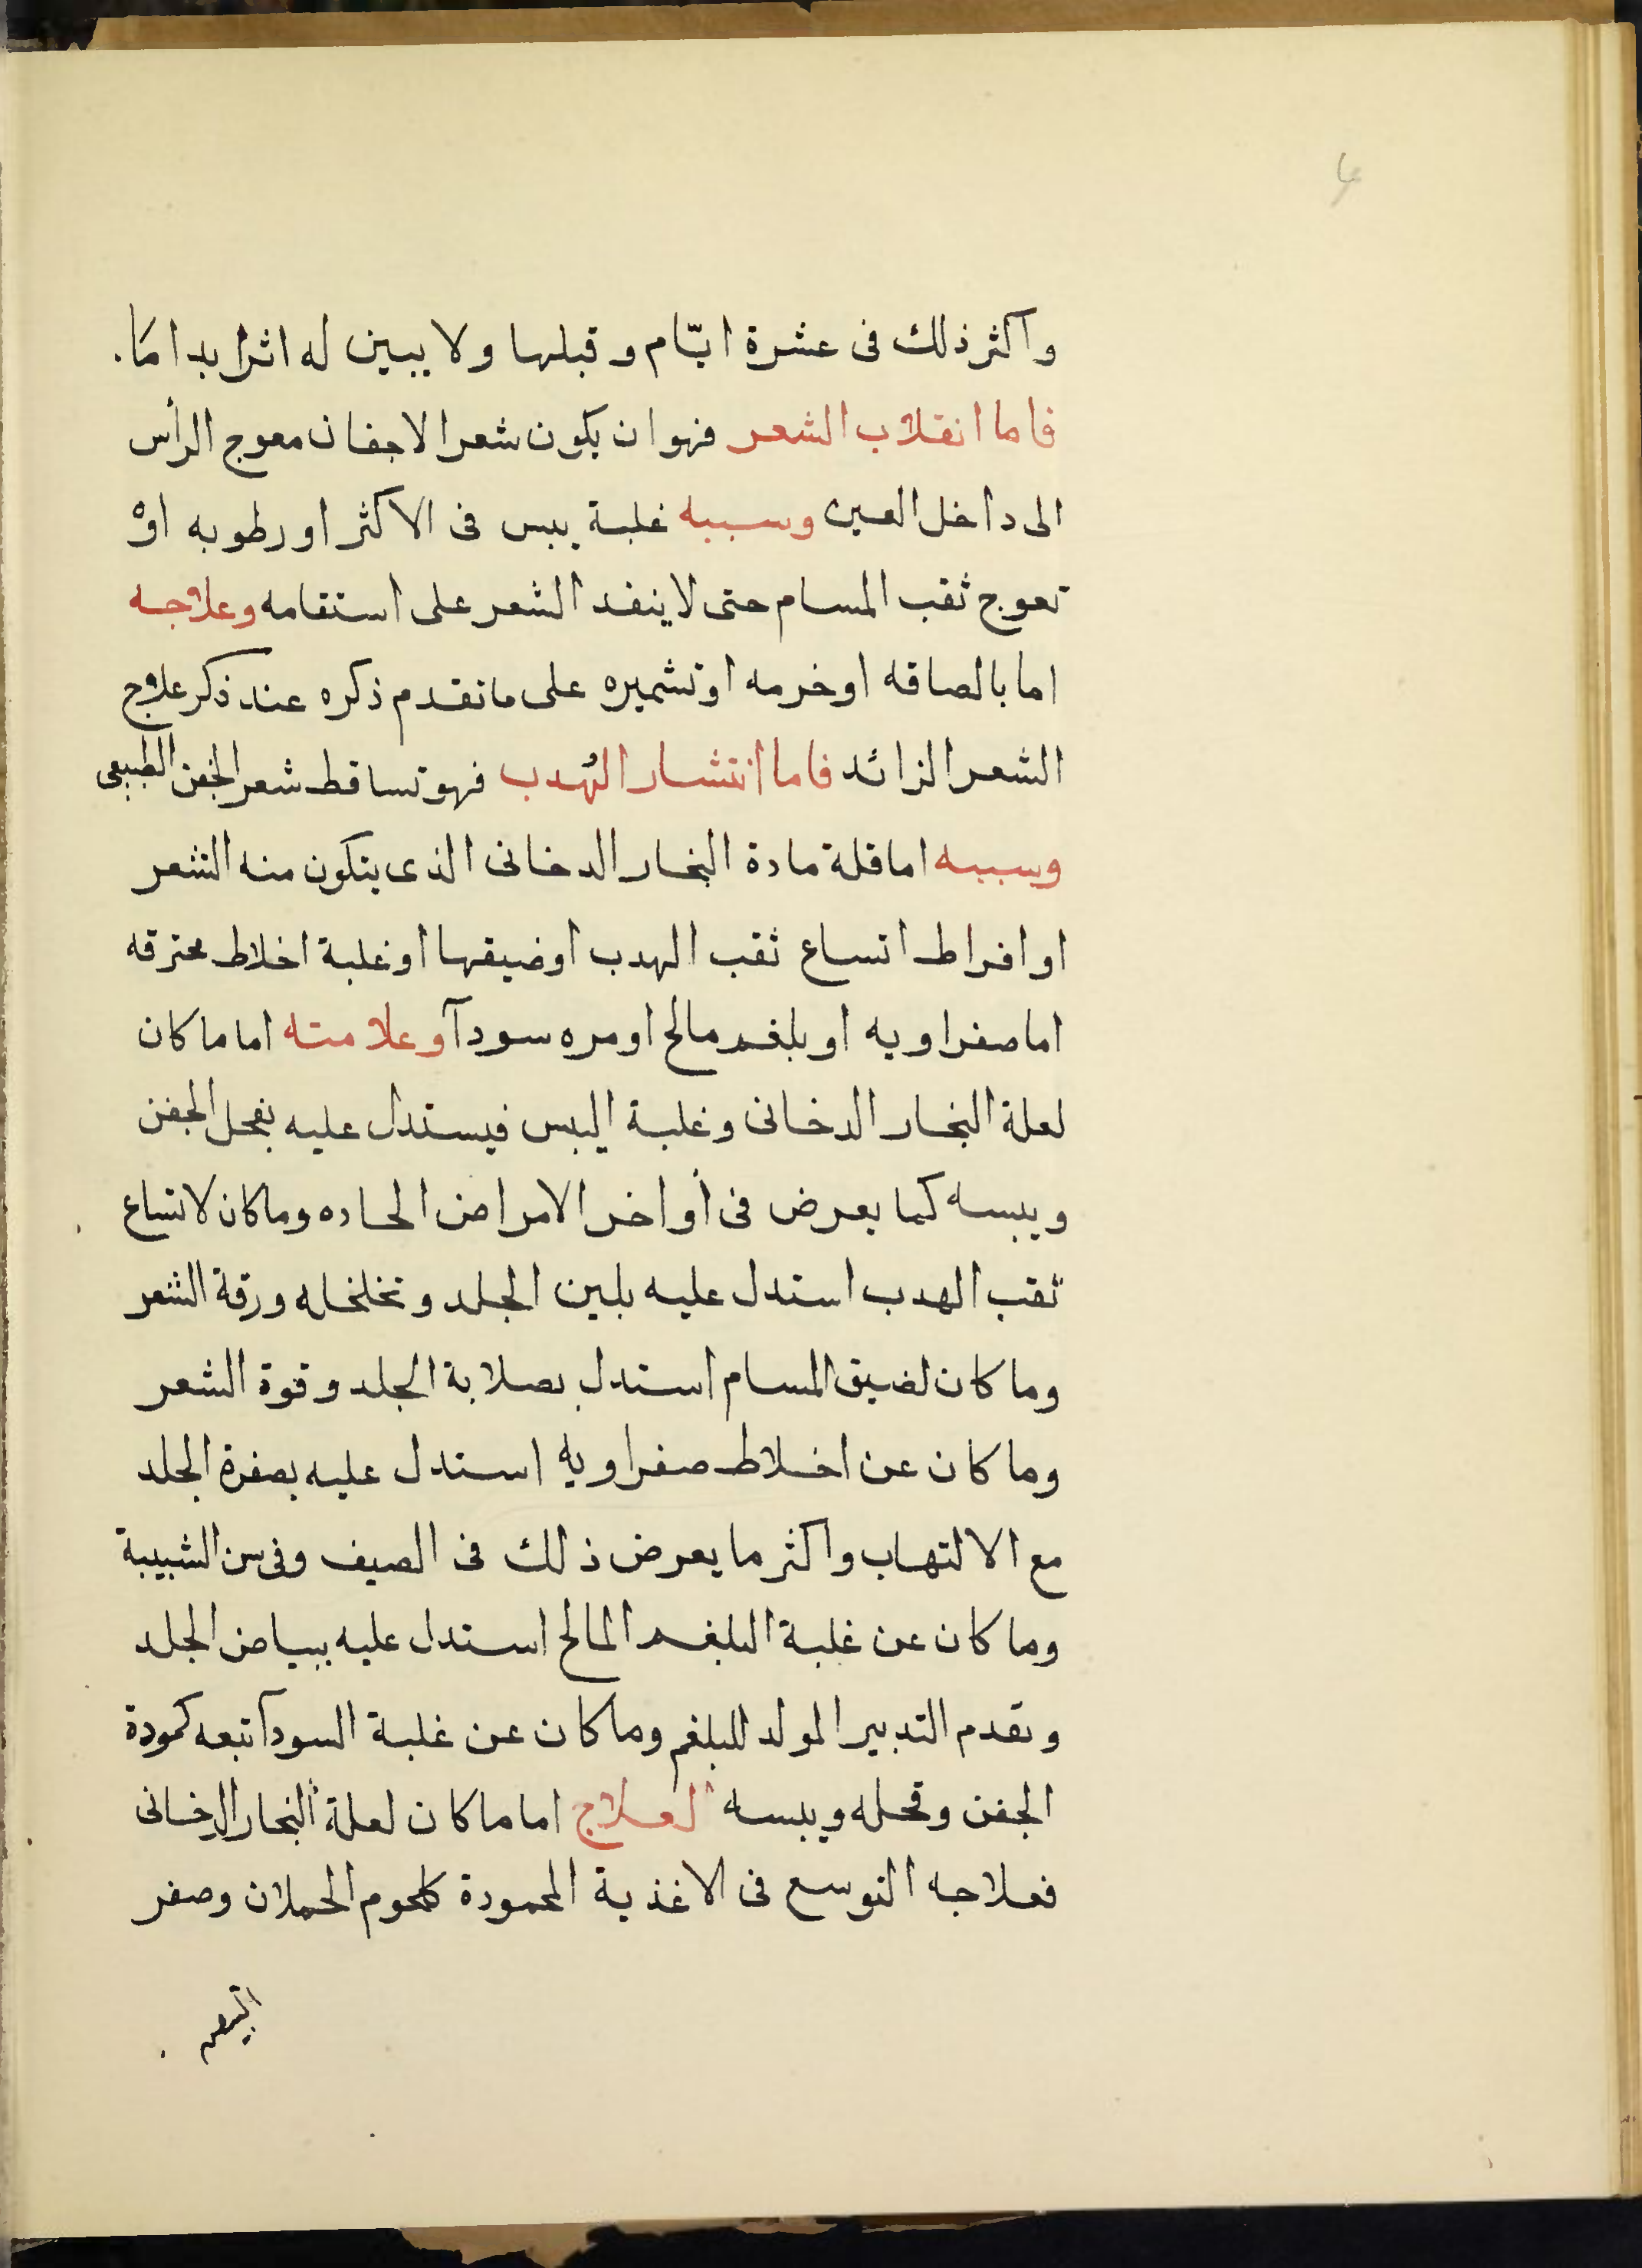 واكثر ذلك فى عشرة ايّام وقبلها ولا يبين له اثر ابدا امّا
فاما انقلاب الشعر فهو ان يكون شعر الاجفان معوج الرأس
الى داخل العين وسببه غلبة يبس فى الاكثر او رطوبه او
تعوج ثقب المسام حتى لا ينفد الشعر على استقامه وعلاجه
اما بالصاقه او خرمه او تشميره على ما تقدم ذكره عند ذكر علاج
الشعر الزائد فاما انتشار الهُدب فهو تساقط شعر الجفن الطبيعى
وسببه اما قلة مادة البخار الدخانى الذى يتكون منه الشعر
او افراط اتساع ثقب الهدب او ضيقها او غلبة اخلاط محترقه
اما صفراويه او بلغم مالح او مره سودآ وعلامته اما ما كان
لعلة البخار الدخانى وغلبة اليبس فيستدل عليه بقحل الجفن
ويبسه كما يعرض فى أواخر الامراض الحاده وما كان لاتساع
ثقب الهدب استدل عليه بلين الجلد وتخلخله ورقة الشعر
وما كان لضيق المسام استدل بصلابة الجلد وقوة الشعر
وما كان عن اخلاط صفراويه استدل عليه بصفرة الجلد
مع الالتهاب واكثر ما يعرض ذلك فى الصيف وفى سن الشبيبة
وما كان عن غلبة البلغم المالح استدل عليه ببياض الجلد
وتقدم التدبير المولد للبلغم وما كان عن غلبة السودآ تبعه كمودة
الجفن وقحله ويبسه العلاج اما ما كان لعلة البخار الدخانى
فعلاجه التوسع فى الاغذية المحمودة كلحوم الحملان وصفر
البيض